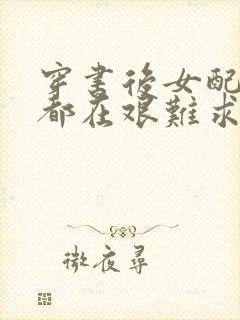 穿書後女配
都在艱難求
微夜尋